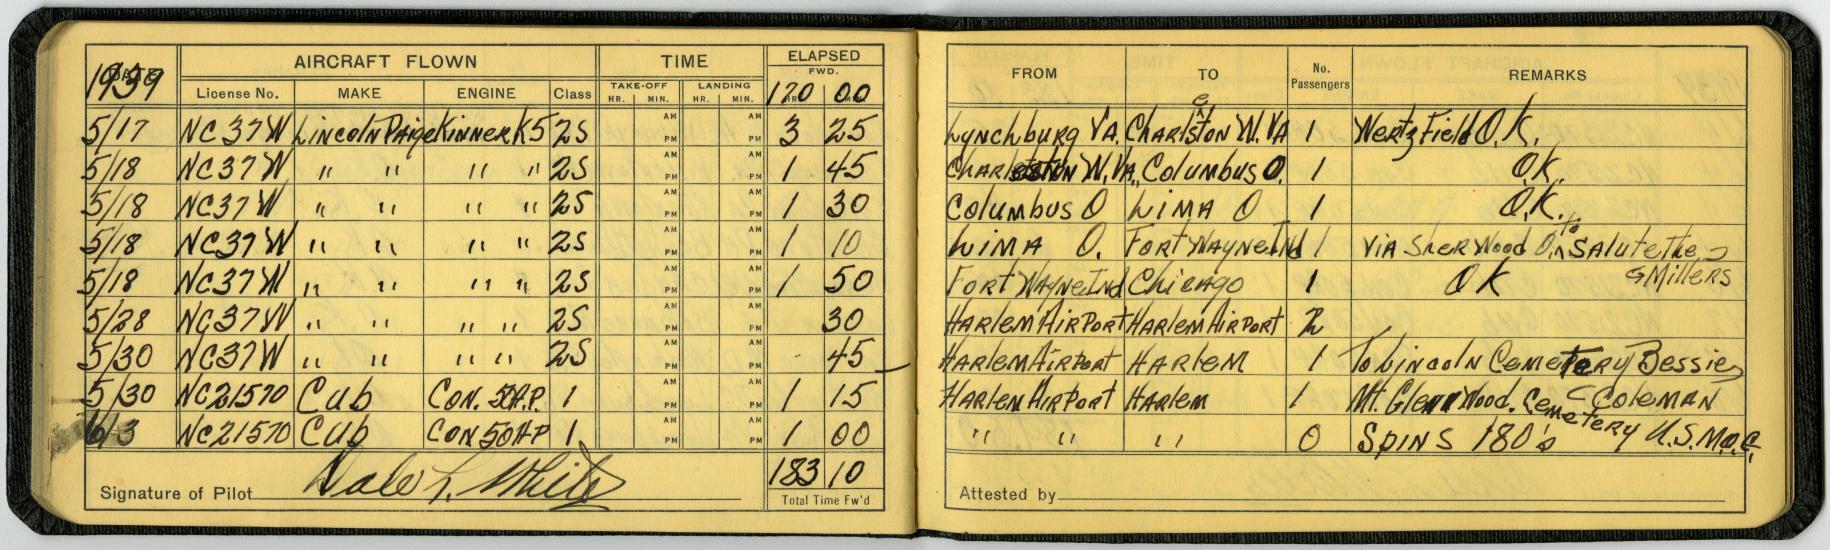 DATE 1939 AIRCRAFT FLOWN TIME ELAPSED FWD. FROM TO No. Passengers REMARKS
License No. MAKE ENGINE Class TAKE-OFF HR. MIN. LANDING HR. MIN. 170 00
5/17 NC37W Lincoln Paige Kinner K5 2S AM PM AM PM 3 25 Lynchburg VA. Charleston W.VA 1 Wertz Field O.K.
5/18 NC37W " " " " 2S AM PM AM PM 1 45 Charleston W.VA. Columbus O. 1 O.K.
5/18 NC37W " " " " 2S AM PM AM PM 1 30 Columbus O LIMA O 1 O.K.
5/18 NC37W " " " " 2S AM PM AM PM 1 10 LIMA O. Fort Wayne Ind 1 VIA Sherwood O. to Salute the
5/18 NC37W " " " " 2S AM PM AM PM 1 50 Fort Wayne Ind Chicago 1 OK Millers
5/28 NC37W " " " " 2S AM PM AM PM 30 Harlem Airport Harlem Airport 2
5/30 NC37W " " " " 2S AM PM AM PM 45 Harlem Airport Harlem 1 To Lincoln Cemetery Bessie
5/30 NC21570 Cub Con. 50H.P. 1 AM PM AM PM 1 15 Harlem Airport Harlem 1 Mt. Glenwood. Cemetery Coleman
6/3 NC21570 Cub CON 50HP 1 AM PM AM PM 1 00 " " " 0 Spins 180's U.S.M.O.C.
Signature of Pilot Dale L. White 183 10 Total Time Fw'd Attested by